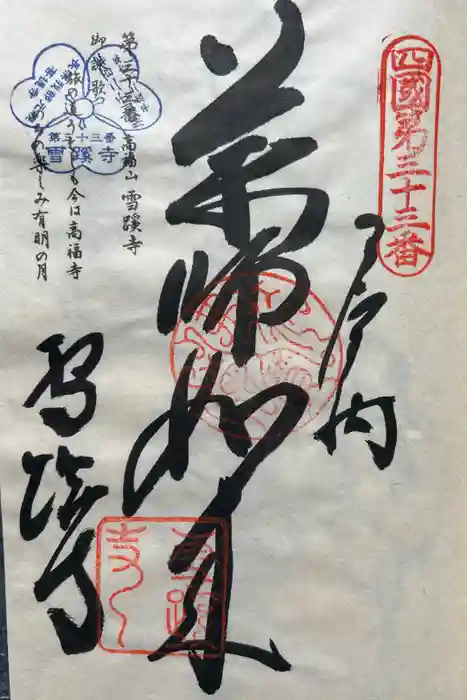 四國第三十三番
奉納
薬師如来
雪蹊寺
第三十三番 高福山 雪蹊寺
御詠歌
旅の道うえしも今は高福寺
のちの楽しみ有明の月
第三十三番
雪蹊寺